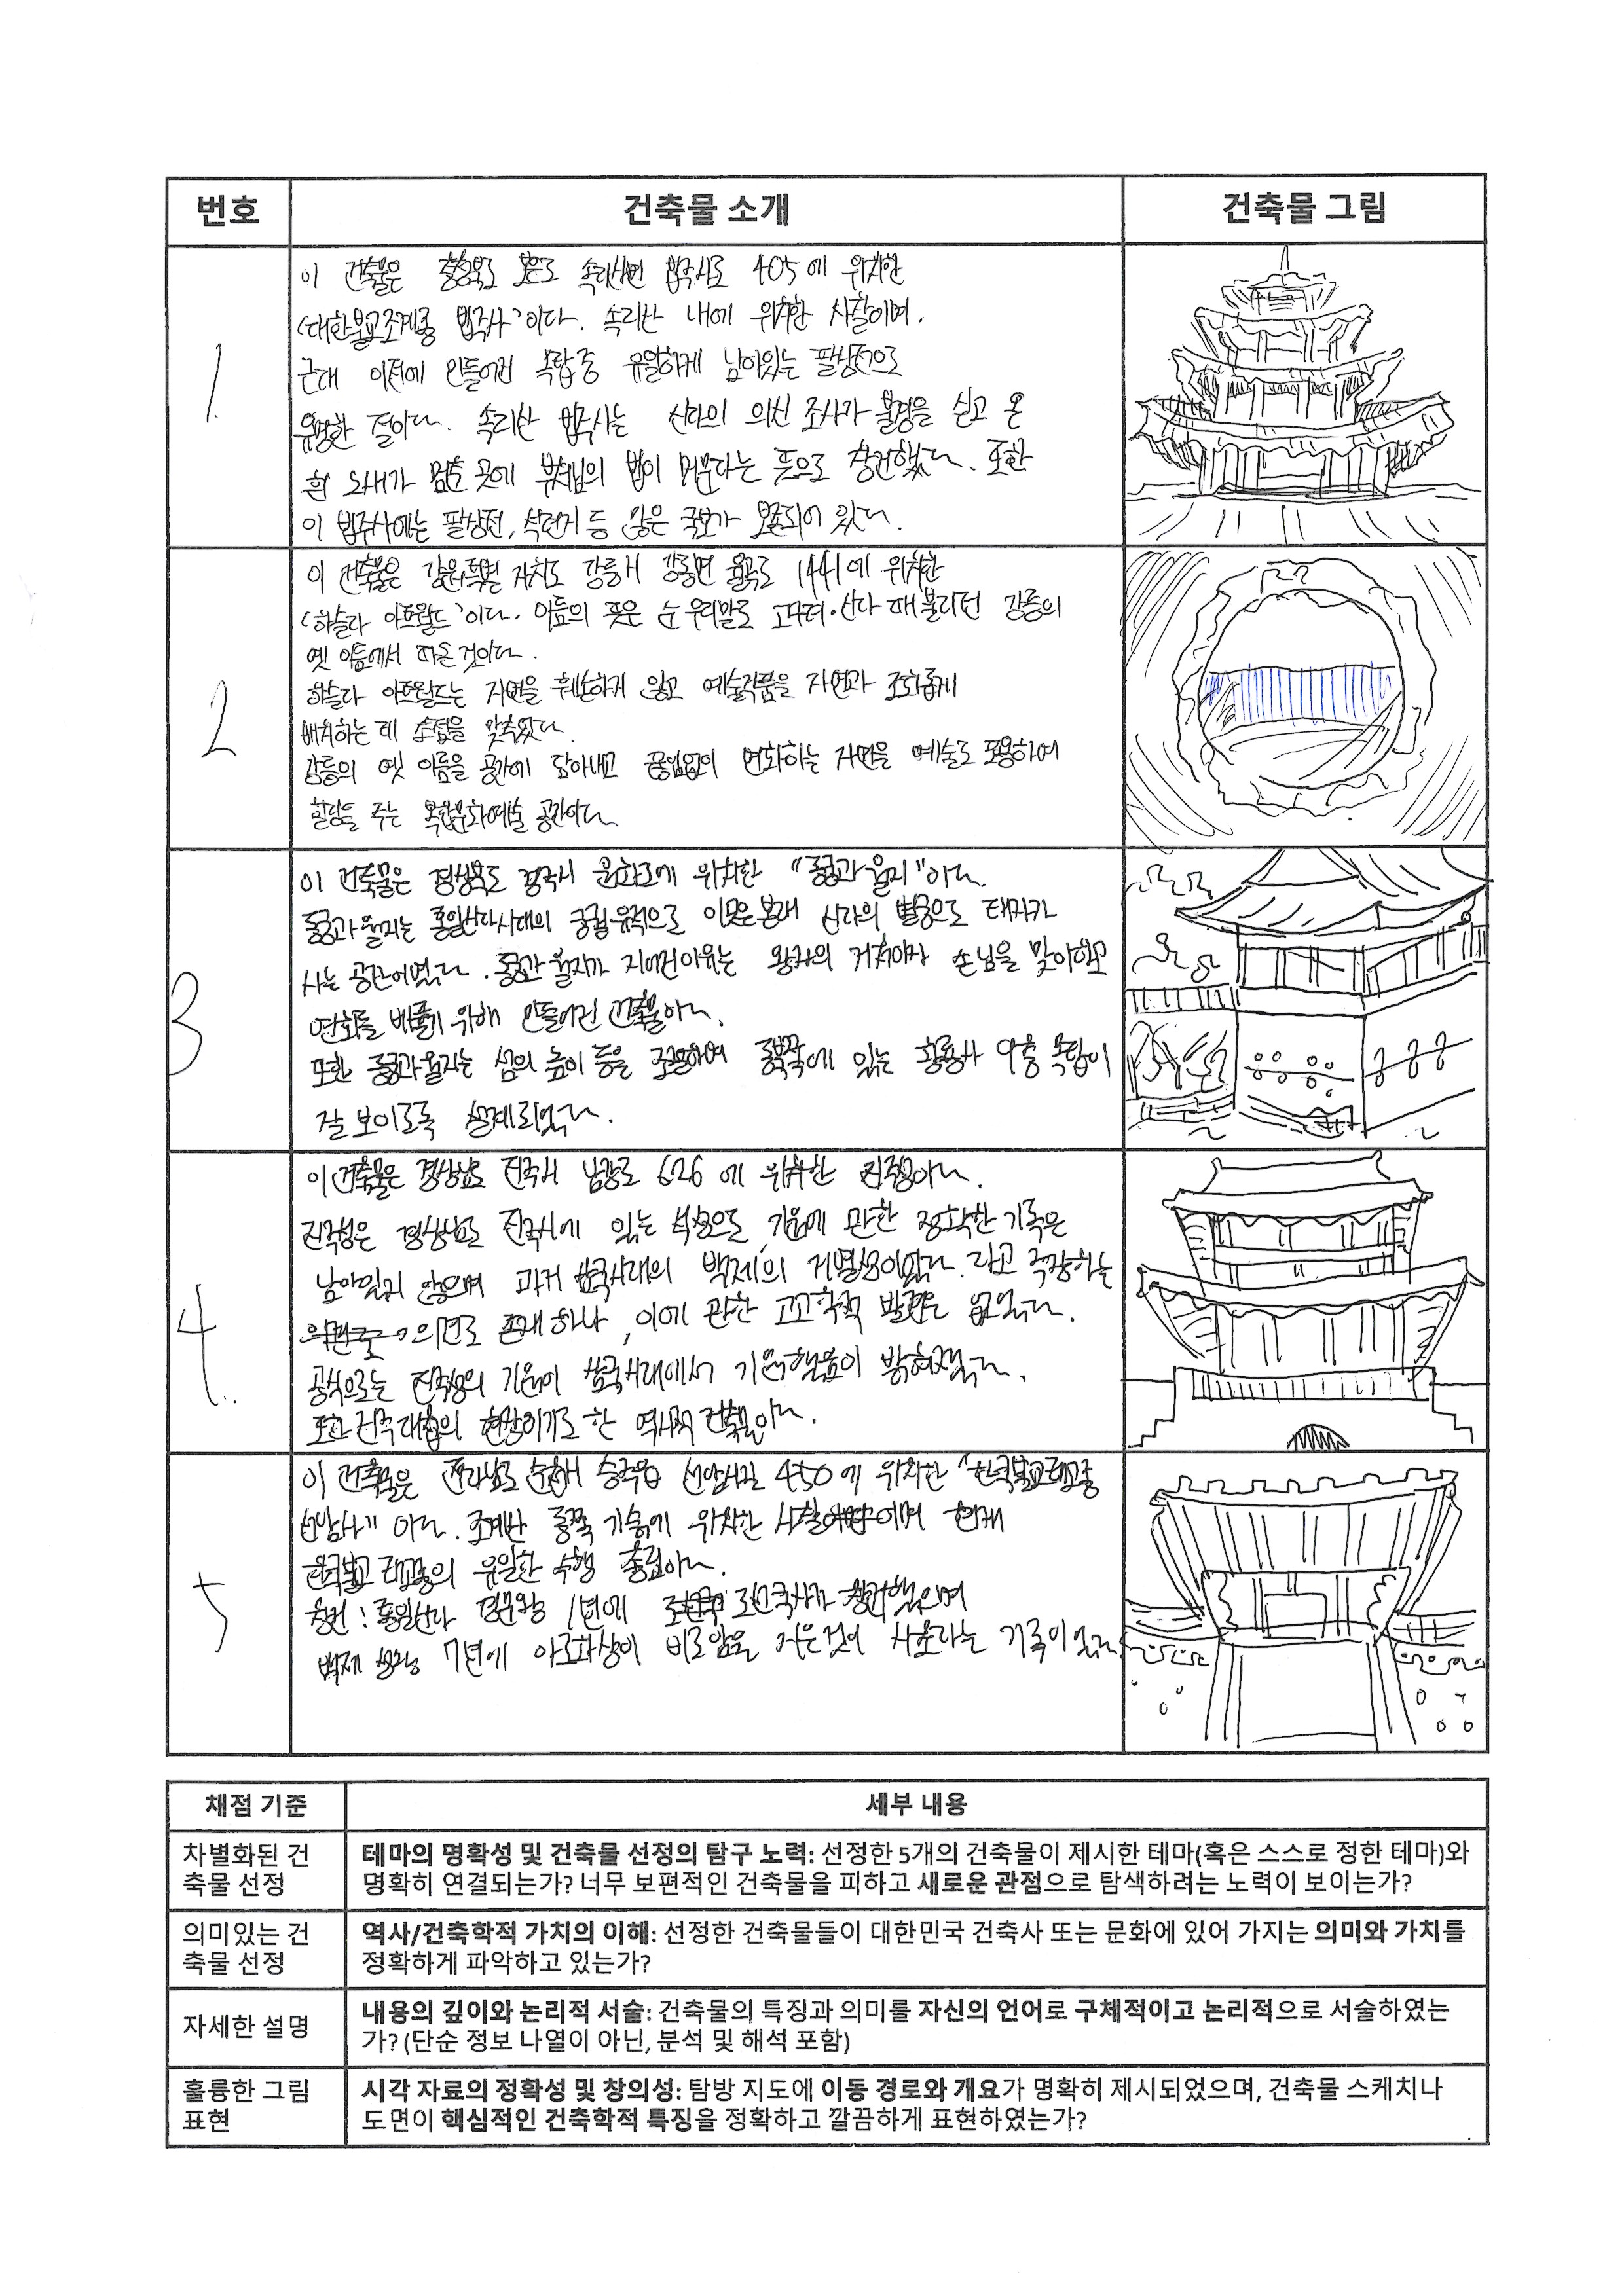 번호
건축물 소개
건축물 그림
1.
이 건축물은 충청북도 보은군 속리산면 법주사로 405에 위치한
'대한불교조계종 법주사'이다. 속리산 내에 위치한 사찰이며.
근대 이전에 만들어진 목탑 중 유일하게 남아있는 팔상전으로
유명한 절이다. 속리산 법주사는 신라의 의신 조사가 불경을 싣고 온
흰 노새가 멈춘 곳에 부처님의 법이 머문다는 뜻으로 창건했다. 또한
이 법주사에는 팔상전, 석련지 등 많은 국보가 보존되어 있다.
2
이 건축물은 강원특별 자치도 강릉시 강동면 율곡로 1441에 위치한
'하슬라 아트월드'이다. 이름의 뜻은 순 우리말로 고구려·신라 때 불리던 강릉의
옛 이름에서 따온 것이다.
하슬라 아트월드는 자연을 훼손하지 않고 예술작품을 자연과 조화롭게
배치하는 데 초점을 맞추었다.
강릉의 옛 이름을 공간에 담아내고 끊임없이 변화하는 자연을 예술로 포용하여
힐링을 주는 복합문화예술 공간이다.
3
이 건축물은 경상북도 경주시 원화로에 위치한 "동궁과 월지"이다.
동궁과 월지는 통일신라시대의 궁궐 유적으로 이곳은 본래 신라의 별궁으로 태자가
사는 공간이였다. 동궁과 월지가 지어진 이유는 왕자의 거처이자 손님을 맞이하고
연회를 베풀기 위해 만들어진 건축물이다.
또한 동궁과 월지는 섬의 높이 등을 조절하여 동쪽에 있는 황룡사 9층 목탑이
잘 보이도록 설계되었다.
4.
이 건축물은 경상남도 진주시 남강로 626에 위치한 진주성이다.
진주성은 경상남도 진주시에 있는 석성으로, 기원에 관한 정확한 기록은
남아있지 않으며 과거 삼국시대의 백제의 거열성이었다. 라고 주장하는
의견도 존재하나, 이에 관한 고고학적 발견은 없었다.
공식으로는 진주성의 기원이 삼국시대에서 기원했음이 밝혀졌다.
또한 진주대첩의 현장이기도 한 역사적 건축물이다.
5
이 건축물은 전라남도 순천시 승주읍 선암사길 450에 위치한 "한국불교태고종
선암사"이다. 조계산 동쪽 기슭에 위치한 사찰이며 현재
한국불교 태고종의 유일한 수행 총림이다.
창건: 통일신라 경문왕 1년에 도선국사가 창건했으며
백제 성왕 7년에 아도화상이 비로암을 지은것이 시초라는 기록이 있다.
채점 기준
세부 내용
차별화된 건
축물 선정
테마의 명확성 및 건축물 선정의 탐구 노력: 선정한 5개의 건축물이 제시한 테마(혹은 스스로 정한 테마)와
명확히 연결되는가? 너무 보편적인 건축물을 피하고 새로운 관점으로 탐색하려는 노력이 보이는가?
의미있는 건
축물 선정
역사/건축학적 가치의 이해: 선정한 건축물들이 대한민국 건축사 또는 문화에 있어 가지는 의미와 가치를
정확하게 파악하고 있는가?
자세한 설명
내용의 깊이와 논리적 서술: 건축물의 특징과 의미를 자신의 언어로 구체적이고 논리적으로 서술하였는
가? (단순 정보 나열이 아닌, 분석 및 해석 포함)
훌륭한 그림
표현
시각 자료의 정확성 및 창의성: 탐방 지도에 이동 경로와 개요가 명확히 제시되었으며, 건축물 스케치나
도면이 핵심적인 건축학적 특징을 정확하고 깔끔하게 표현하였는가?